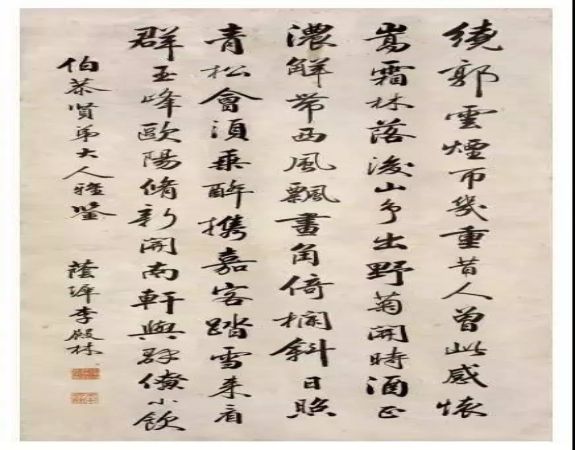 繞郭雲煙帀幾重昔人曾此感懷
嵩霜林落後山爭出野菊開時酒正
濃解帶西風飄畫角倚欄斜日照
青松會須乘醉携嘉客踏雪來看
群玉峰歐陽脩新開南軒與郡僚小飲
伯恭賢弟大人雅鑒
蔭墀李殿林